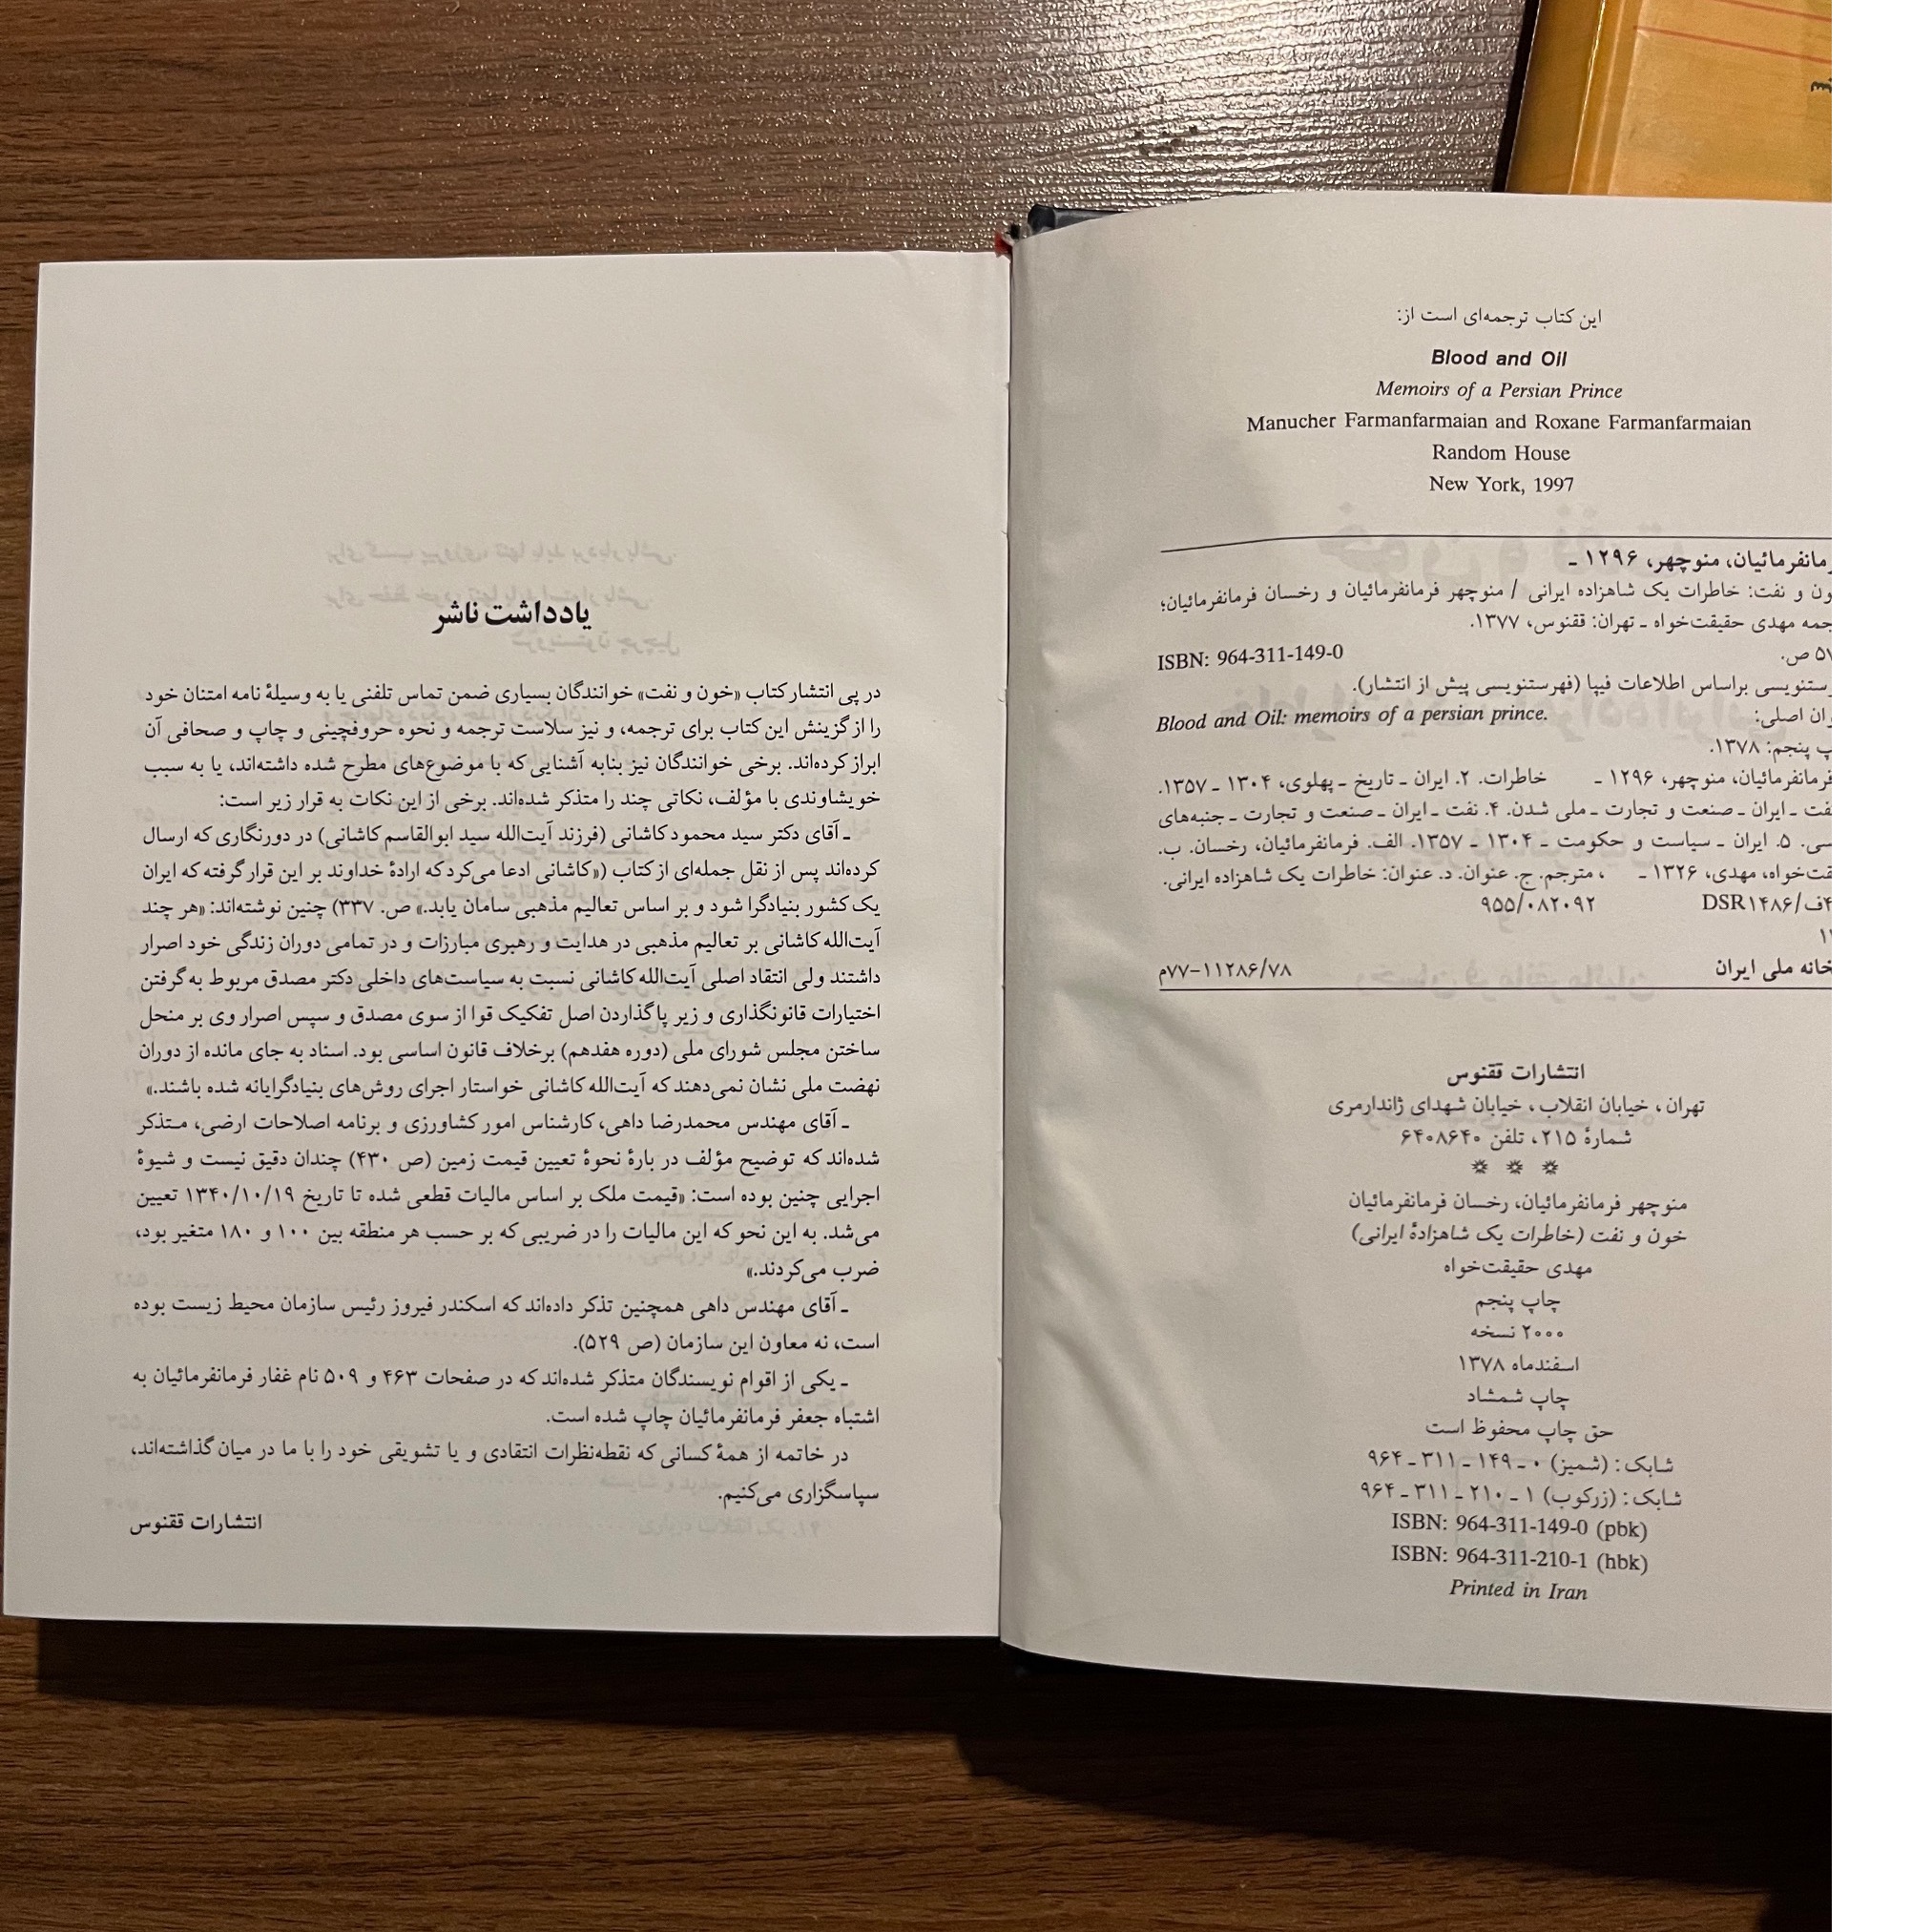 این کتاب ترجمه‌ای است از:
Blood and Oil
Memoirs of a Persian Prince
Manucher Farmanfarmaian and Roxane Farmanfarmaian
Random House
New York, 1997
منوچهر، ۱۲۹۶ ـ
و نفت: خاطرات یک شاهزاده ایرانی / منوچهر فرمانفرمائیان و رخسان فرمانفرمائیان؛
مهدی حقیقت‌خواه ـ تهران: ققنوس، ۱۳۷۷.
ص.
ISBN: 964-311-149-0
براساس اطلاعات فیپا (فهرستنویسی پیش از انتشار).
اصلی:
Blood and Oil: memoirs of a persian prince.
پنجم: ۱۳۷۸.
فرمانفرمائیان، منوچهر، ۱۲۹۶ ـ خاطرات. ۲. ایران ـ تاریخ ـ پهلوی، ۱۳۰۴ ـ ۱۳۵۷.
ـ ایران ـ صنعت و تجارت ـ ملی شدن. ۴. نفت ـ ایران ـ صنعت و تجارت ـ جنبه‌های
۵. ایران ـ سیاست و حکومت ـ ۱۳۰۴ ـ ۱۳۵۷. الف. فرمانفرمائیان، رخسان. ب.
مهدی، ۱۳۲۶ ـ ، مترجم. ج. عنوان. د. عنوان: خاطرات یک شاهزاده ایرانی.
DSR۱۴۸۶/ف۴ ۹۵۵/۰۸۲۰۹۲
ملی ایران ۷۷-۱۱۲۸۶/۷۸م
انتشارات ققنوس
تهران، خیابان انقلاب، خیابان شهدای ژاندارمری
شمارهٔ ۲۱۵، تلفن ۶۴۰۸۶۴۰
منوچهر فرمانفرمائیان، رخسان فرمانفرمائیان
خون و نفت (خاطرات یک شاهزادهٔ ایرانی)
مهدی حقیقت‌خواه
چاپ پنجم
۲۰۰۰ نسخه
اسفندماه ۱۳۷۸
چاپ شمشاد
حق چاپ محفوظ است
شابک: (شمیز) ۰ ـ ۱۴۹ ـ ۳۱۱ ـ ۹۶۴
شابک: (زرکوب) ۱ ـ ۲۱۰ ـ ۳۱۱ ـ ۹۶۴
ISBN: 964-311-149-0 (pbk)
ISBN: 964-311-210-1 (hbk)
Printed in Iran
یادداشت ناشر
در پی انتشار کتاب «خون و نفت» خوانندگان بسیاری ضمن تماس تلفنی یا به وسیلهٔ نامه امتنان خود
را از گزینش این کتاب برای ترجمه، و نیز سلاست ترجمه و نحوه حروفچینی و چاپ و صحافی آن
ابراز کرده‌اند. برخی خوانندگان نیز بنابه آشنایی که با موضوع‌های مطرح شده داشته‌اند، یا به سبب
خویشاوندی با مؤلف، نکاتی چند را متذکر شده‌اند. برخی از این نکات به قرار زیر است:
ـ آقای دکتر سید محمود کاشانی (فرزند آیت‌الله سید ابوالقاسم کاشانی) در دورنگاری که ارسال
کرده‌اند پس از نقل جمله‌ای از کتاب («کاشانی ادعا می‌کرد که ارادهٔ خداوند بر این قرار گرفته که ایران
یک کشور بنیادگرا شود و بر اساس تعالیم مذهبی سامان یابد.» ص. ۳۳۷) چنین نوشته‌اند: «هر چند
آیت‌الله کاشانی بر تعالیم مذهبی در هدایت و رهبری مبارزات و در تمامی دوران زندگی خود اصرار
داشتند ولی انتقاد اصلی آیت‌الله کاشانی نسبت به سیاست‌های داخلی دکتر مصدق مربوط به گرفتن
اختیارات قانونگذاری و زیر پا گذاردن اصل تفکیک قوا از سوی مصدق و سپس اصرار وی بر منحل
ساختن مجلس شورای ملی (دوره هفدهم) برخلاف قانون اساسی بود. اسناد به جای مانده از دوران
نهضت ملی نشان نمی‌دهند که آیت‌الله کاشانی خواستار اجرای روش‌های بنیادگرایانه شده باشند.»
ـ آقای مهندس محمدرضا داهی، کارشناس امور کشاورزی و برنامه اصلاحات ارضی، متذکر
شده‌اند که توضیح مؤلف در بارهٔ نحوهٔ تعیین قیمت زمین (ص ۴۳۰) چندان دقیق نیست و شیوهٔ
اجرایی چنین بوده است: «قیمت ملک بر اساس مالیات قطعی شده تا تاریخ ۱۳۴۰/۱۰/۱۹ تعیین
می‌شد. به این نحو که این مالیات را در ضریبی که بر حسب هر منطقه بین ۱۰۰ و ۱۸۰ متغیر بود،
ضرب می‌کردند.»
ـ آقای مهندس داهی همچنین تذکر داده‌اند که اسکندر فیروز رئیس سازمان محیط زیست بوده
است، نه معاون این سازمان (ص ۵۲۹).
ـ یکی از اقوام نویسندگان متذکر شده‌اند که در صفحات ۴۶۳ و ۵۰۹ نام غفار فرمانفرمائیان به
اشتباه جعفر فرمانفرمائیان چاپ شده است.
در خاتمه از همهٔ کسانی که نقطه‌نظرات انتقادی و یا تشویقی خود را با ما در میان گذاشته‌اند،
سپاسگزاری می‌کنیم.
انتشارات ققنوس